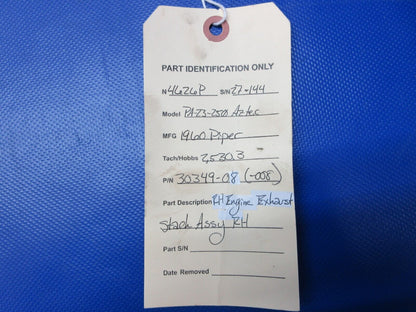 PART IDENTIFICATION ONLY
N 4626P S/N 27-144
Model PA-23-250 Aztec
MFG 1960 Piper
Tach/Hobbs 2,530.3
P/N 30349-08 (-008)
Part Description RH Engine Exhaust
Stack Assy RH
Part S/N
Date Removed